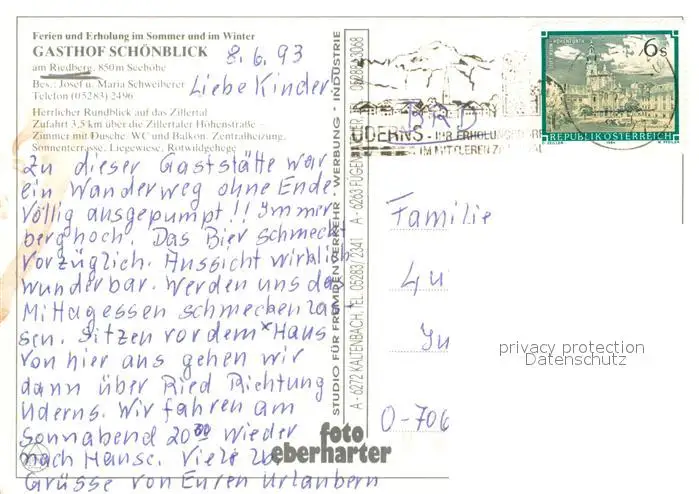 Ferien und Erholung im Sommer und im Winter
GASTHOF SCHÖNBLICK
am Riedberg, 850m Seehöhe
Bes.: Josef u. Maria Schweiberer
Telefon (05283) 2496
Herrlicher Rundblick auf das Zillertal
Zufahrt 3,5 km über die Zillertaler Höhenstraße –
Zimmer mit Dusche, WC und Balkon, Zentralheizung,
Sonnenterrasse, Liegewiese, Rotwildgehege
8.6.93
Liebe Kinder
Zu dieser Gaststätte war
ein Wanderweg ohne Ende.
Völlig ausgepumpt!! Immer
berghoch. Das Bier schmeckt
vorzüglich. Aussicht wirklich
wunderbar. Werden uns das
Mittagessen schmecken las-
sen. Sitzen vor dem Haus
Von hier aus gehen wir
dann über Ried Richtung
Uderns. Wir fahren am
Sonnabend 20 00 wieder
nach Hause. Viele
Grüsse von Euren Urlaubern
STUDIO FÜR FREMDENVERKEHR - WERBUNG - INDUSTRIE
A - 6272 KALTENBACH, TEL. 05283 / 2341 A - 6263 FÜGEN
foto
eberharter
UDERNS - IHR ERHOLUNGS
IM MITTLEREN
BRD
6s
REPUBLIK ÖSTERREICH
Familie
O-706
privacy protection
Datenschutz